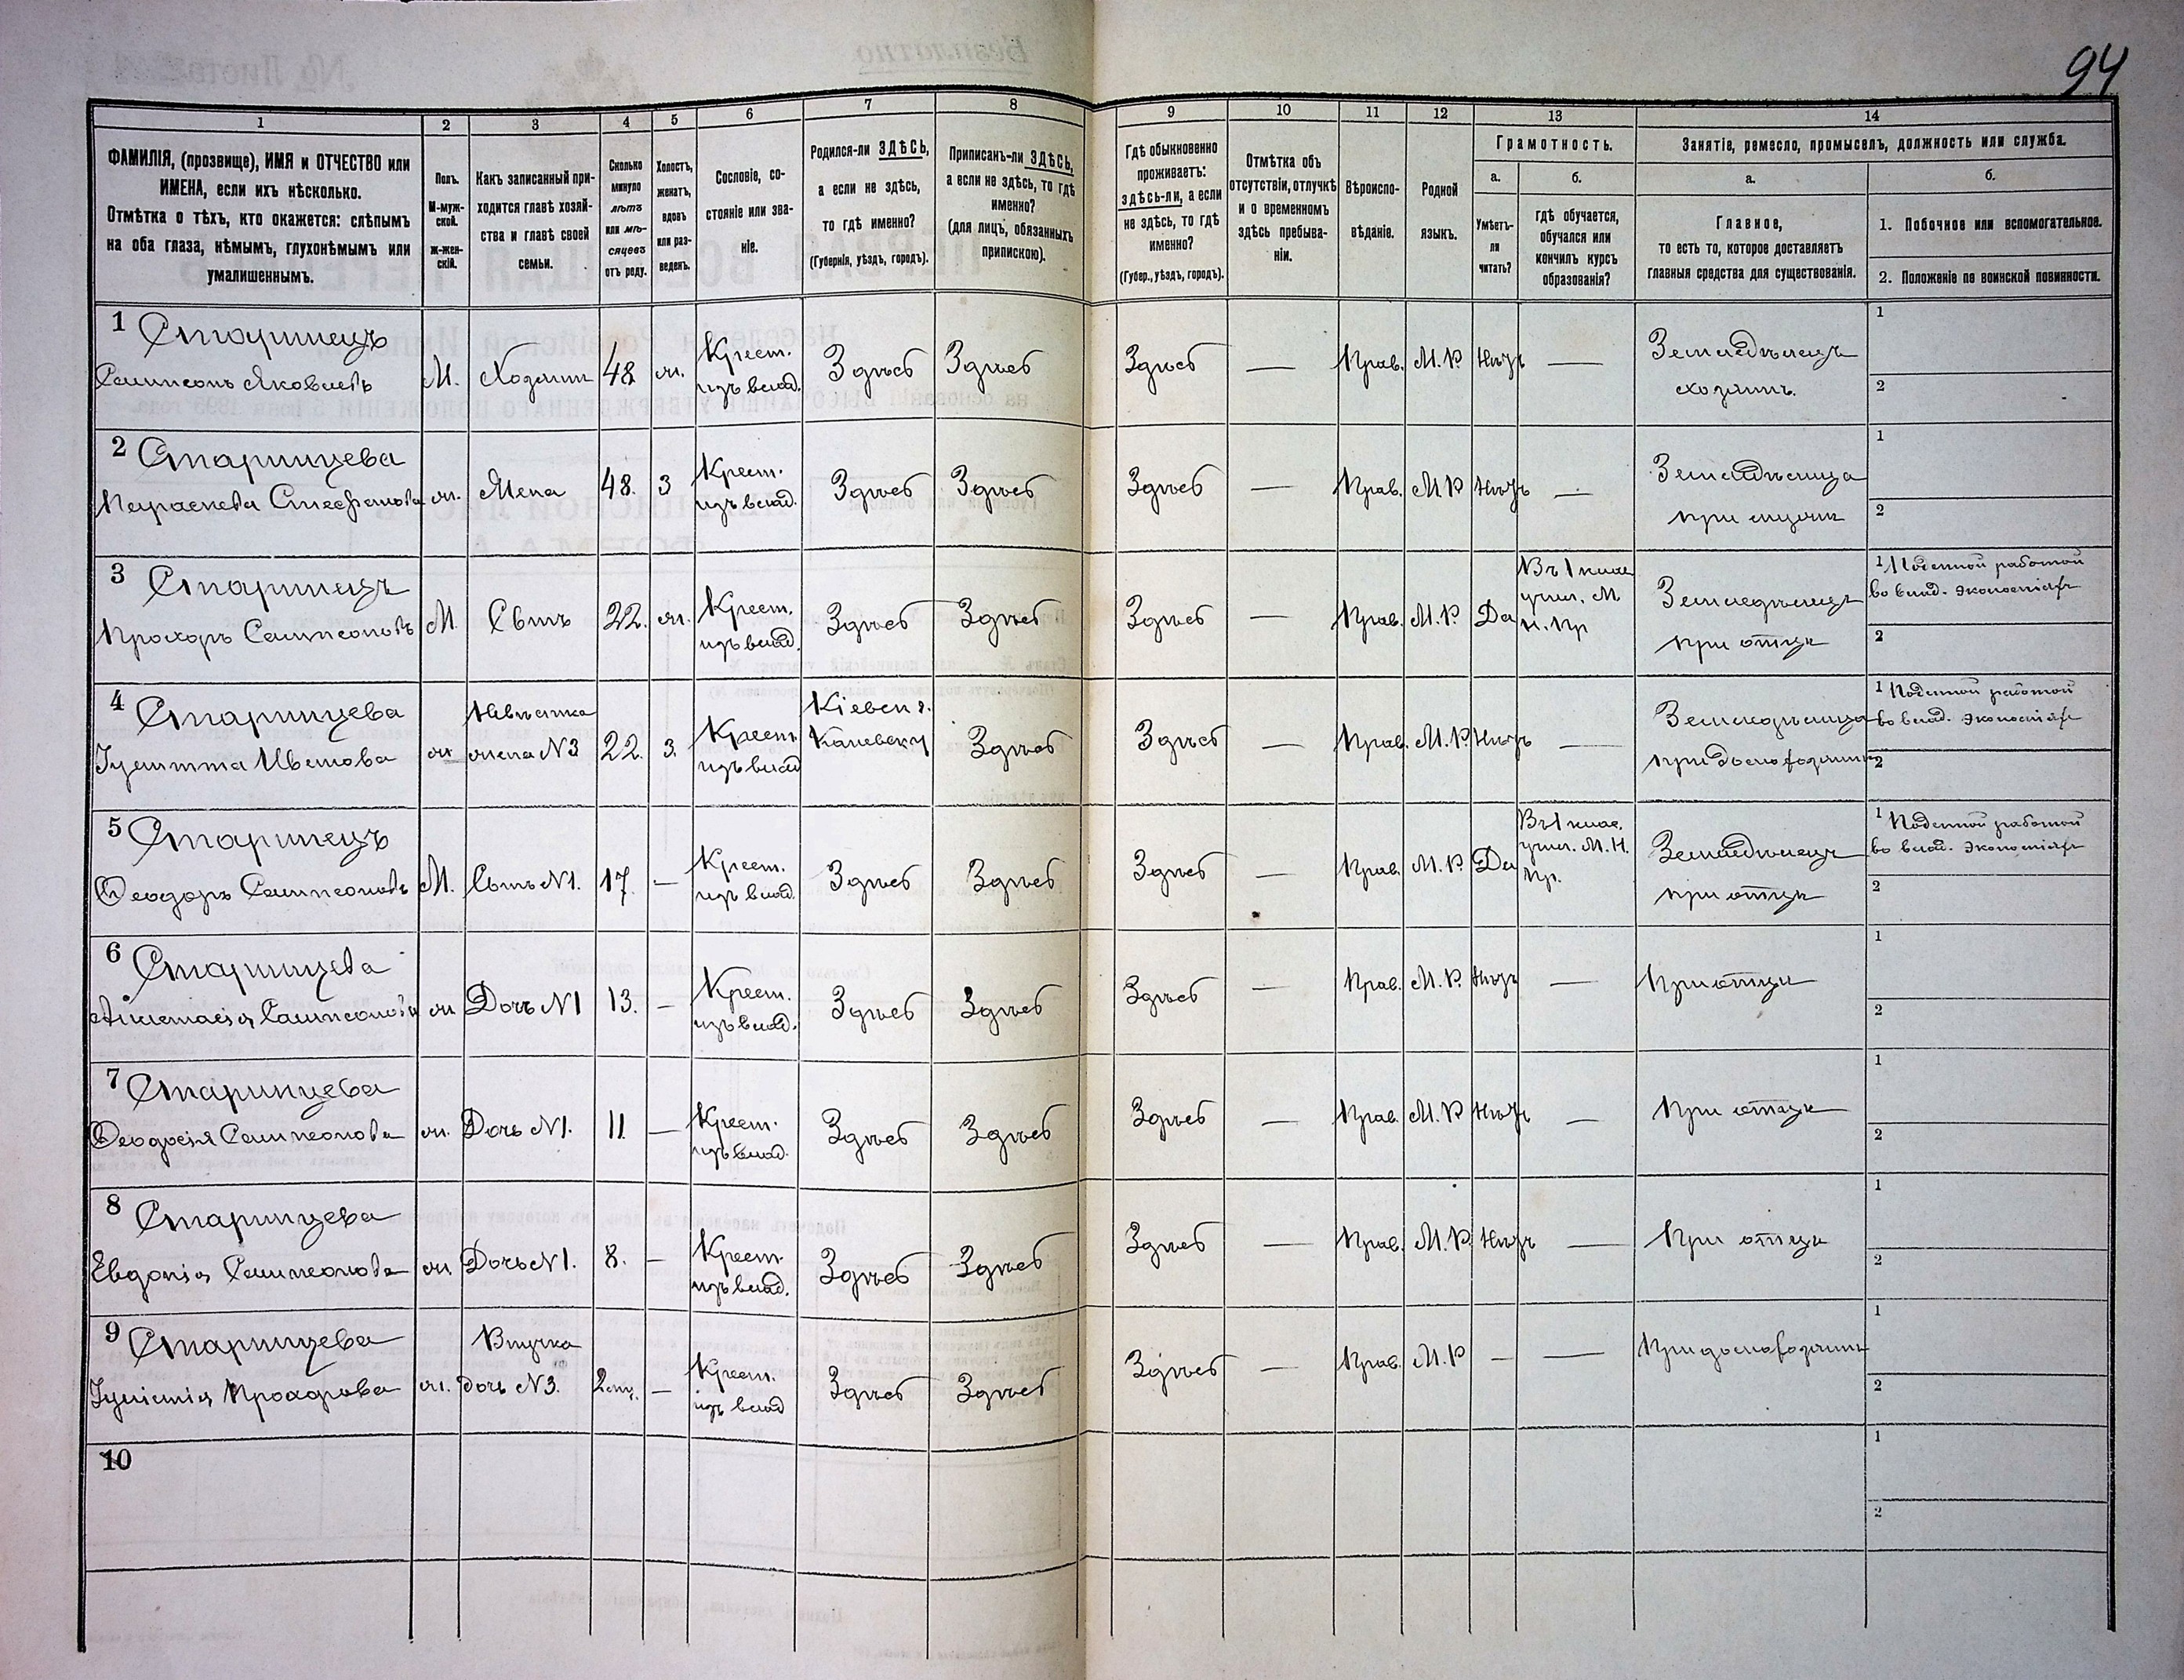 94
1
2
3
4
5
6
7
8
9
10
11
12
13
14
ФАМИЛІЯ, (прозвище), ИМЯ и ОТЧЕСТВО или
ИМЕНА, если ихъ нѣсколько.
Отмѣтка о тѣхъ, кто окажется: слѣпымъ
на оба глаза, нѣмымъ, глухонѣмымъ или
умалишеннымъ.
Полъ.
М-муж-
ской.
ж-жен-
скій.
Какъ записанный при-
ходится главѣ хозяй-
ства и главѣ своей
семьи.
Сколько
минуло
лѣтъ
или мѣ-
сяцевъ
отъ роду.
Холостъ,
женатъ,
вдовъ
или раз-
веденъ.
Сословіе, со-
стояніе или зва-
ніе.
Родился-ли ЗДѢСЬ,
а если не здѣсь,
то гдѣ именно?
(Губернія, уѣздъ, городъ).
Приписанъ-ли ЗДѢСЬ,
а если не здѣсь, то гдѣ
именно?
(для лицъ, обязанныхъ
припискою).
Гдѣ обыкновенно
проживаетъ:
здѣсь-ли, а если
не здѣсь, то гдѣ
именно?
(Губер., уѣздъ, городъ).
Отмѣтка объ
отсутствіи, отлучкѣ
и о временномъ
здѣсь пребыва-
ніи.
Вѣроиспо-
вѣданіе.
Родной
языкъ.
Грамотность.
а.
Умѣетъ-
ли
читать?
б.
гдѣ обучается,
обучался или
кончилъ курсъ
образованія?
Занятіе, ремесло, промыселъ, должность или служба.
а.
Главное,
то есть то, которое доставляетъ
главныя средства для существованія.
б.
1. Побочное или вспомогательное.
2. Положеніе по воинской повинности.
1 Старинецъ
Сампсонъ Яковлевъ
М.
Хозяинъ
48
ж.
Крест.
изъ влад.
Здѣсь
Здѣсь
Здѣсь
—
Прав.
М. Р.
Нѣтъ
—
Земледѣлецъ
хозяинъ.
1
2
2 Старинцева
Параскева Стефанова
ж.
Жена
48.
З
Крест.
изъ влад.
Здѣсь
Здѣсь
Здѣсь
—
Прав.
М. Р
Нѣтъ
—
Земледѣлица
при мужѣ
1
2
3 Старинецъ
Прохоръ Сампсоновъ
М.
Сынъ
22.
ж.
Крест.
изъ влад.
Здѣсь
Здѣсь
Здѣсь
—
Прав.
М. Р.
Да
Въ 1 клас
учил. М
Н. Пр
Земледѣлецъ
при отцѣ
1 Поденной работой
во влад. экономіяхъ
2
4 Старинцева
Іулитта Иванова
ж
Невѣстка
жена N 3
22.
З.
Крест.
изъ влад
Кіевск г.
Каневск у
Здѣсь
Здѣсь
—
Прав.
М. Р.
Нѣтъ
—
Земледѣлица
при домохозяинѣ
1 Поденной работой
во влад. экономіяхъ
2
5 Старинецъ
Ѳеодоръ Сампсоновъ
М.
Сынъ N 1.
17.
—
Крест.
изъ влад.
Здѣсь
Здѣсь
Здѣсь
—
Прав.
М. Р.
Да
Въ 1 клас.
учил. М. Н.
Пр.
Земледѣлецъ
при отцѣ
1 Поденной работой
во влад. экономіяхъ
2
6 Старинцева
Анастасія Сампсонова
ж
Дочь N 1
13.
—
Крест.
изъ влад.
Здѣсь
Здѣсь
Здѣсь
—
Прав.
М. Р.
Нѣтъ
—
При отцѣ
1
2
7 Старинцева
Ѳеодосія Сампсонова
ж.
Дочь N 1.
11.
—
Крест.
изъ влад.
Здѣсь
Здѣсь
Здѣсь
—
Прав.
М. Р
Нѣтъ
—
При отцѣ
1
2
8 Старинцева
Евдокія Сампсонова
ж.
Дочь N 1.
8.
—
Крест.
изъ влад.
Здѣсь
Здѣсь
Здѣсь
—
Прав.
М. Р
Нѣтъ
—
При отцѣ
1
2
9 Старинцева
Іуліанія Прохорова
ж.
Внучка
дочь N 3.
2 мц.
—
Крест.
изъ влад
Здѣсь
Здѣсь
Здѣсь
—
Прав.
М. Р
—
—
При домохозяинѣ
1
2
10
1
2